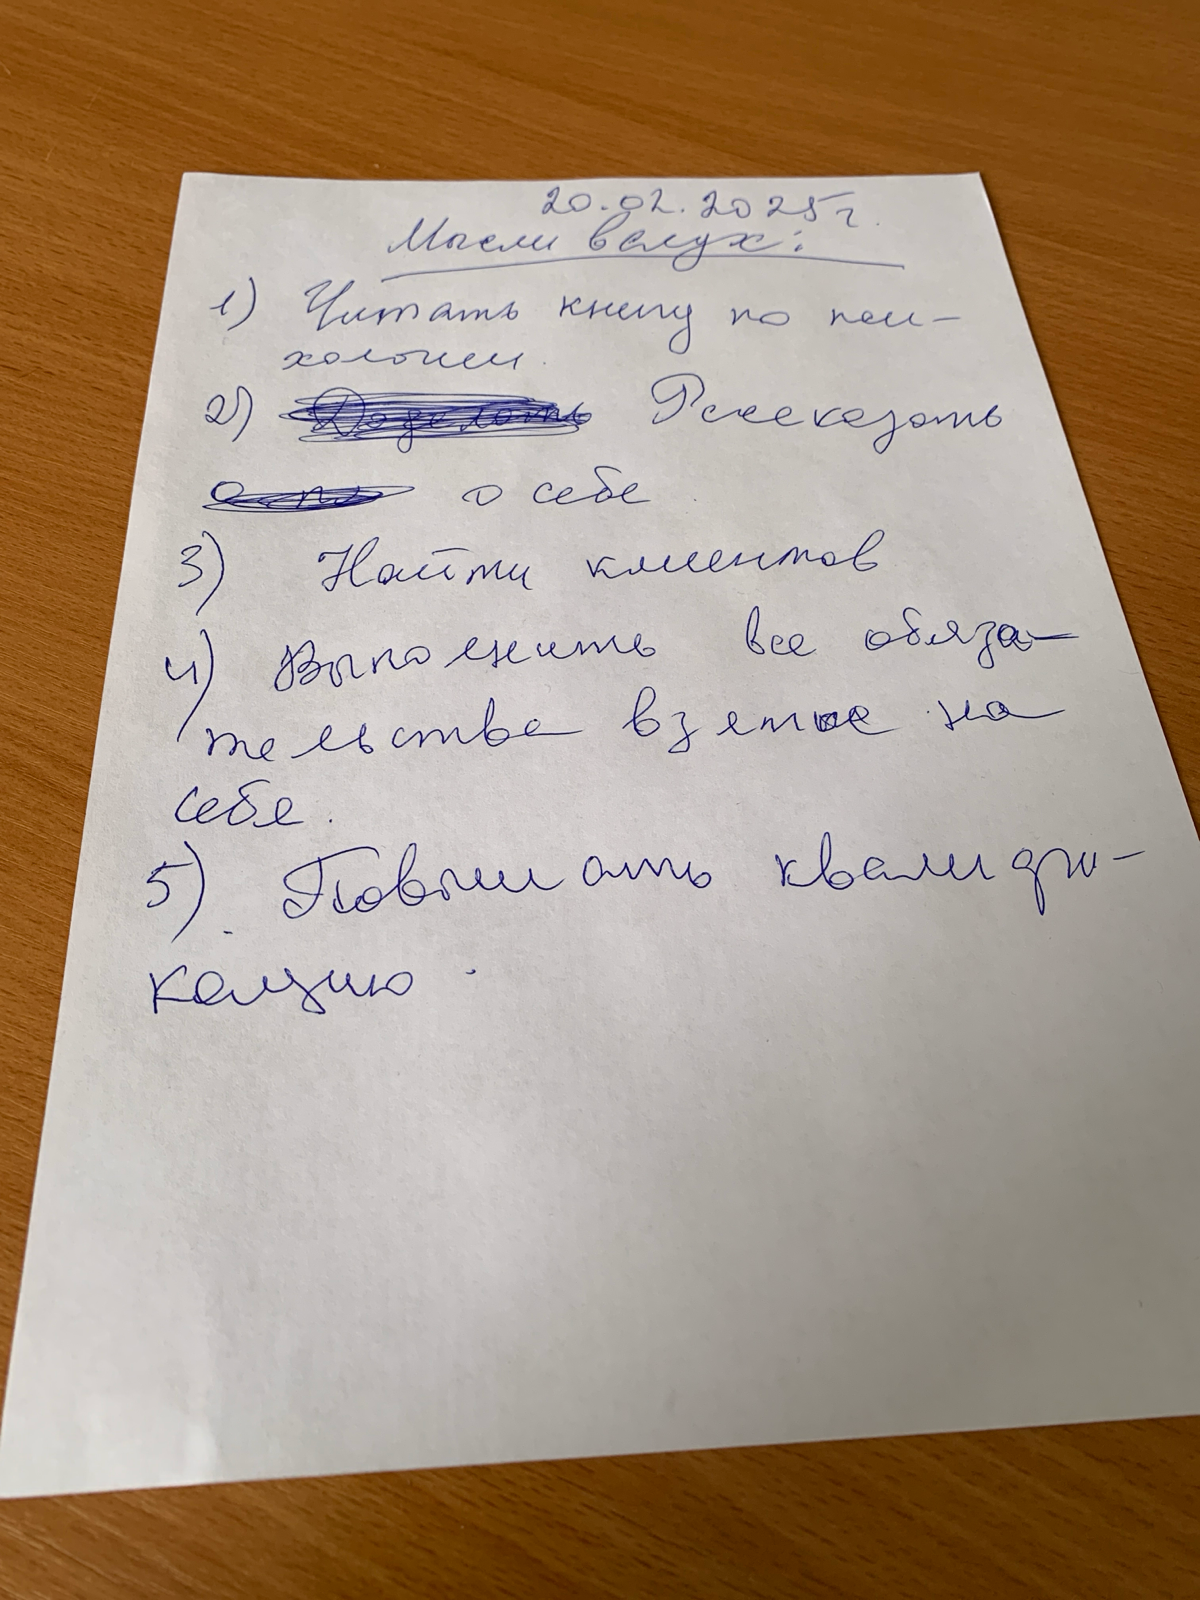 20.02.2025г.
Мысли вслух:
1) Читать книгу по пси-
хологии.
2) Доделать Рассказать
о себе
3) Найти клиентов
4) Выполнить все обяза-
тельства взятые на
себя.
5). Повышать квалифи-
кацию.